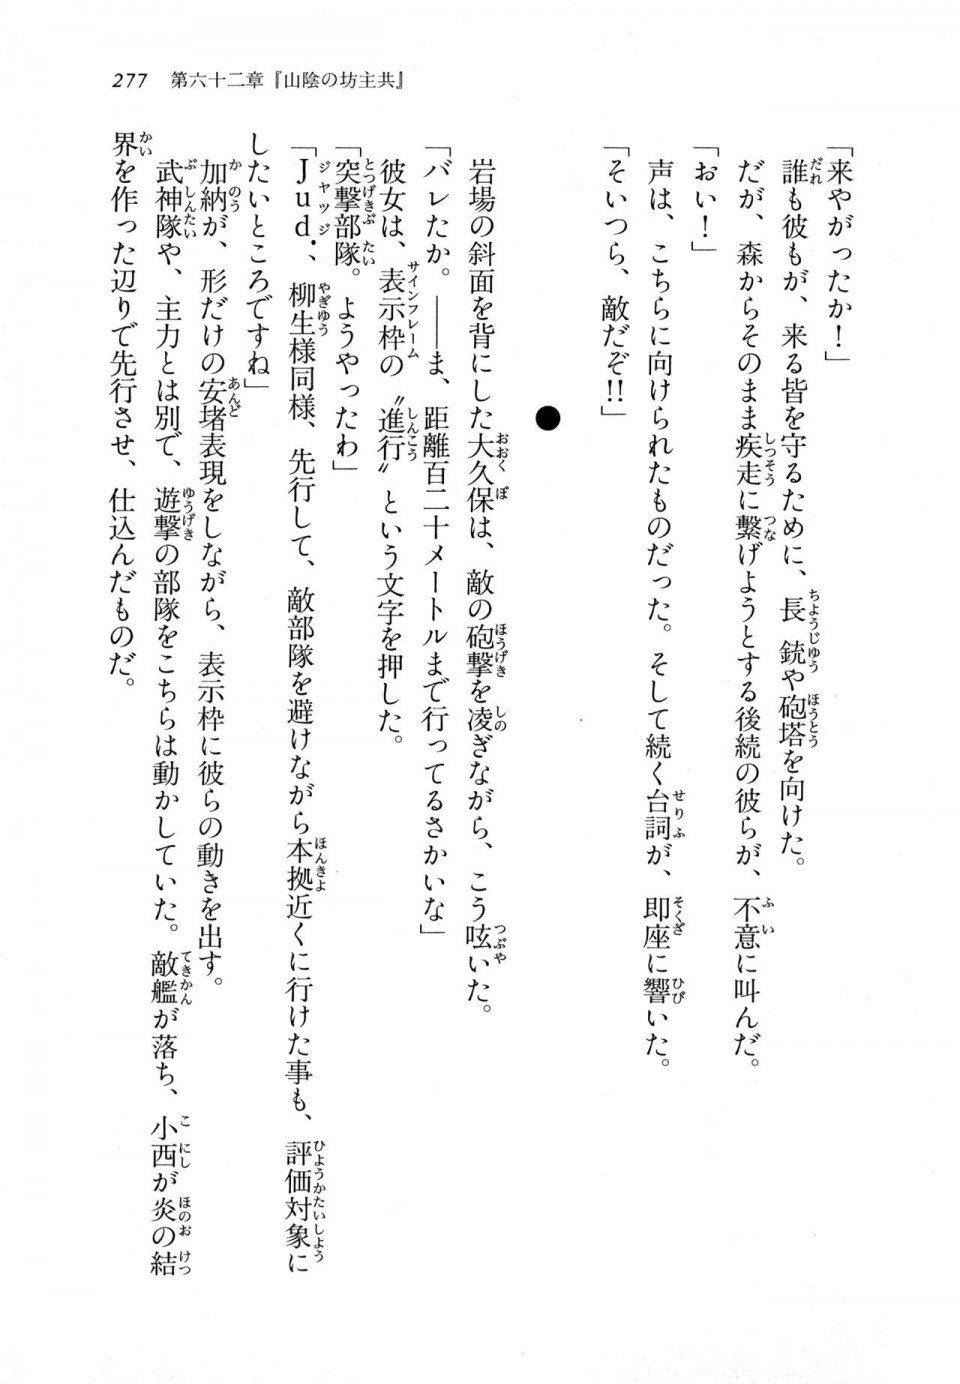 277 第六十二章『山陰の坊主共』
「来やがったか！」
誰も彼もが、来る皆を守るために、長銃や砲塔を向けた。
だが、森からそのまま疾走に繋げようとする後続の彼らが、不意に叫んだ。
「おい！」
声は、こちらに向けられたものだった。そして続く台詞が、即座に響いた。
「そいつら、敵だぞ!!」
●
岩場の斜面を背にした大久保は、敵の砲撃を凌ぎながら、こう呟いた。
「バレたか。——ま、距離百二十メートルまで行ってるさかいな」
彼女は、表示枠の〝進行〟という文字を押した。
「突撃部隊。ようやったわ」
「Jud.、柳生様同様、先行して、敵部隊を避けながら本拠近くに行けた事も、評価対象に
したいところですね」
加納が、形だけの安堵表現をしながら、表示枠に彼らの動きを出す。
武神隊や、主力とは別で、遊撃の部隊をこちらは動かしていた。敵艦が落ち、小西が炎の結
界を作った辺りで先行させ、仕込んだものだ。